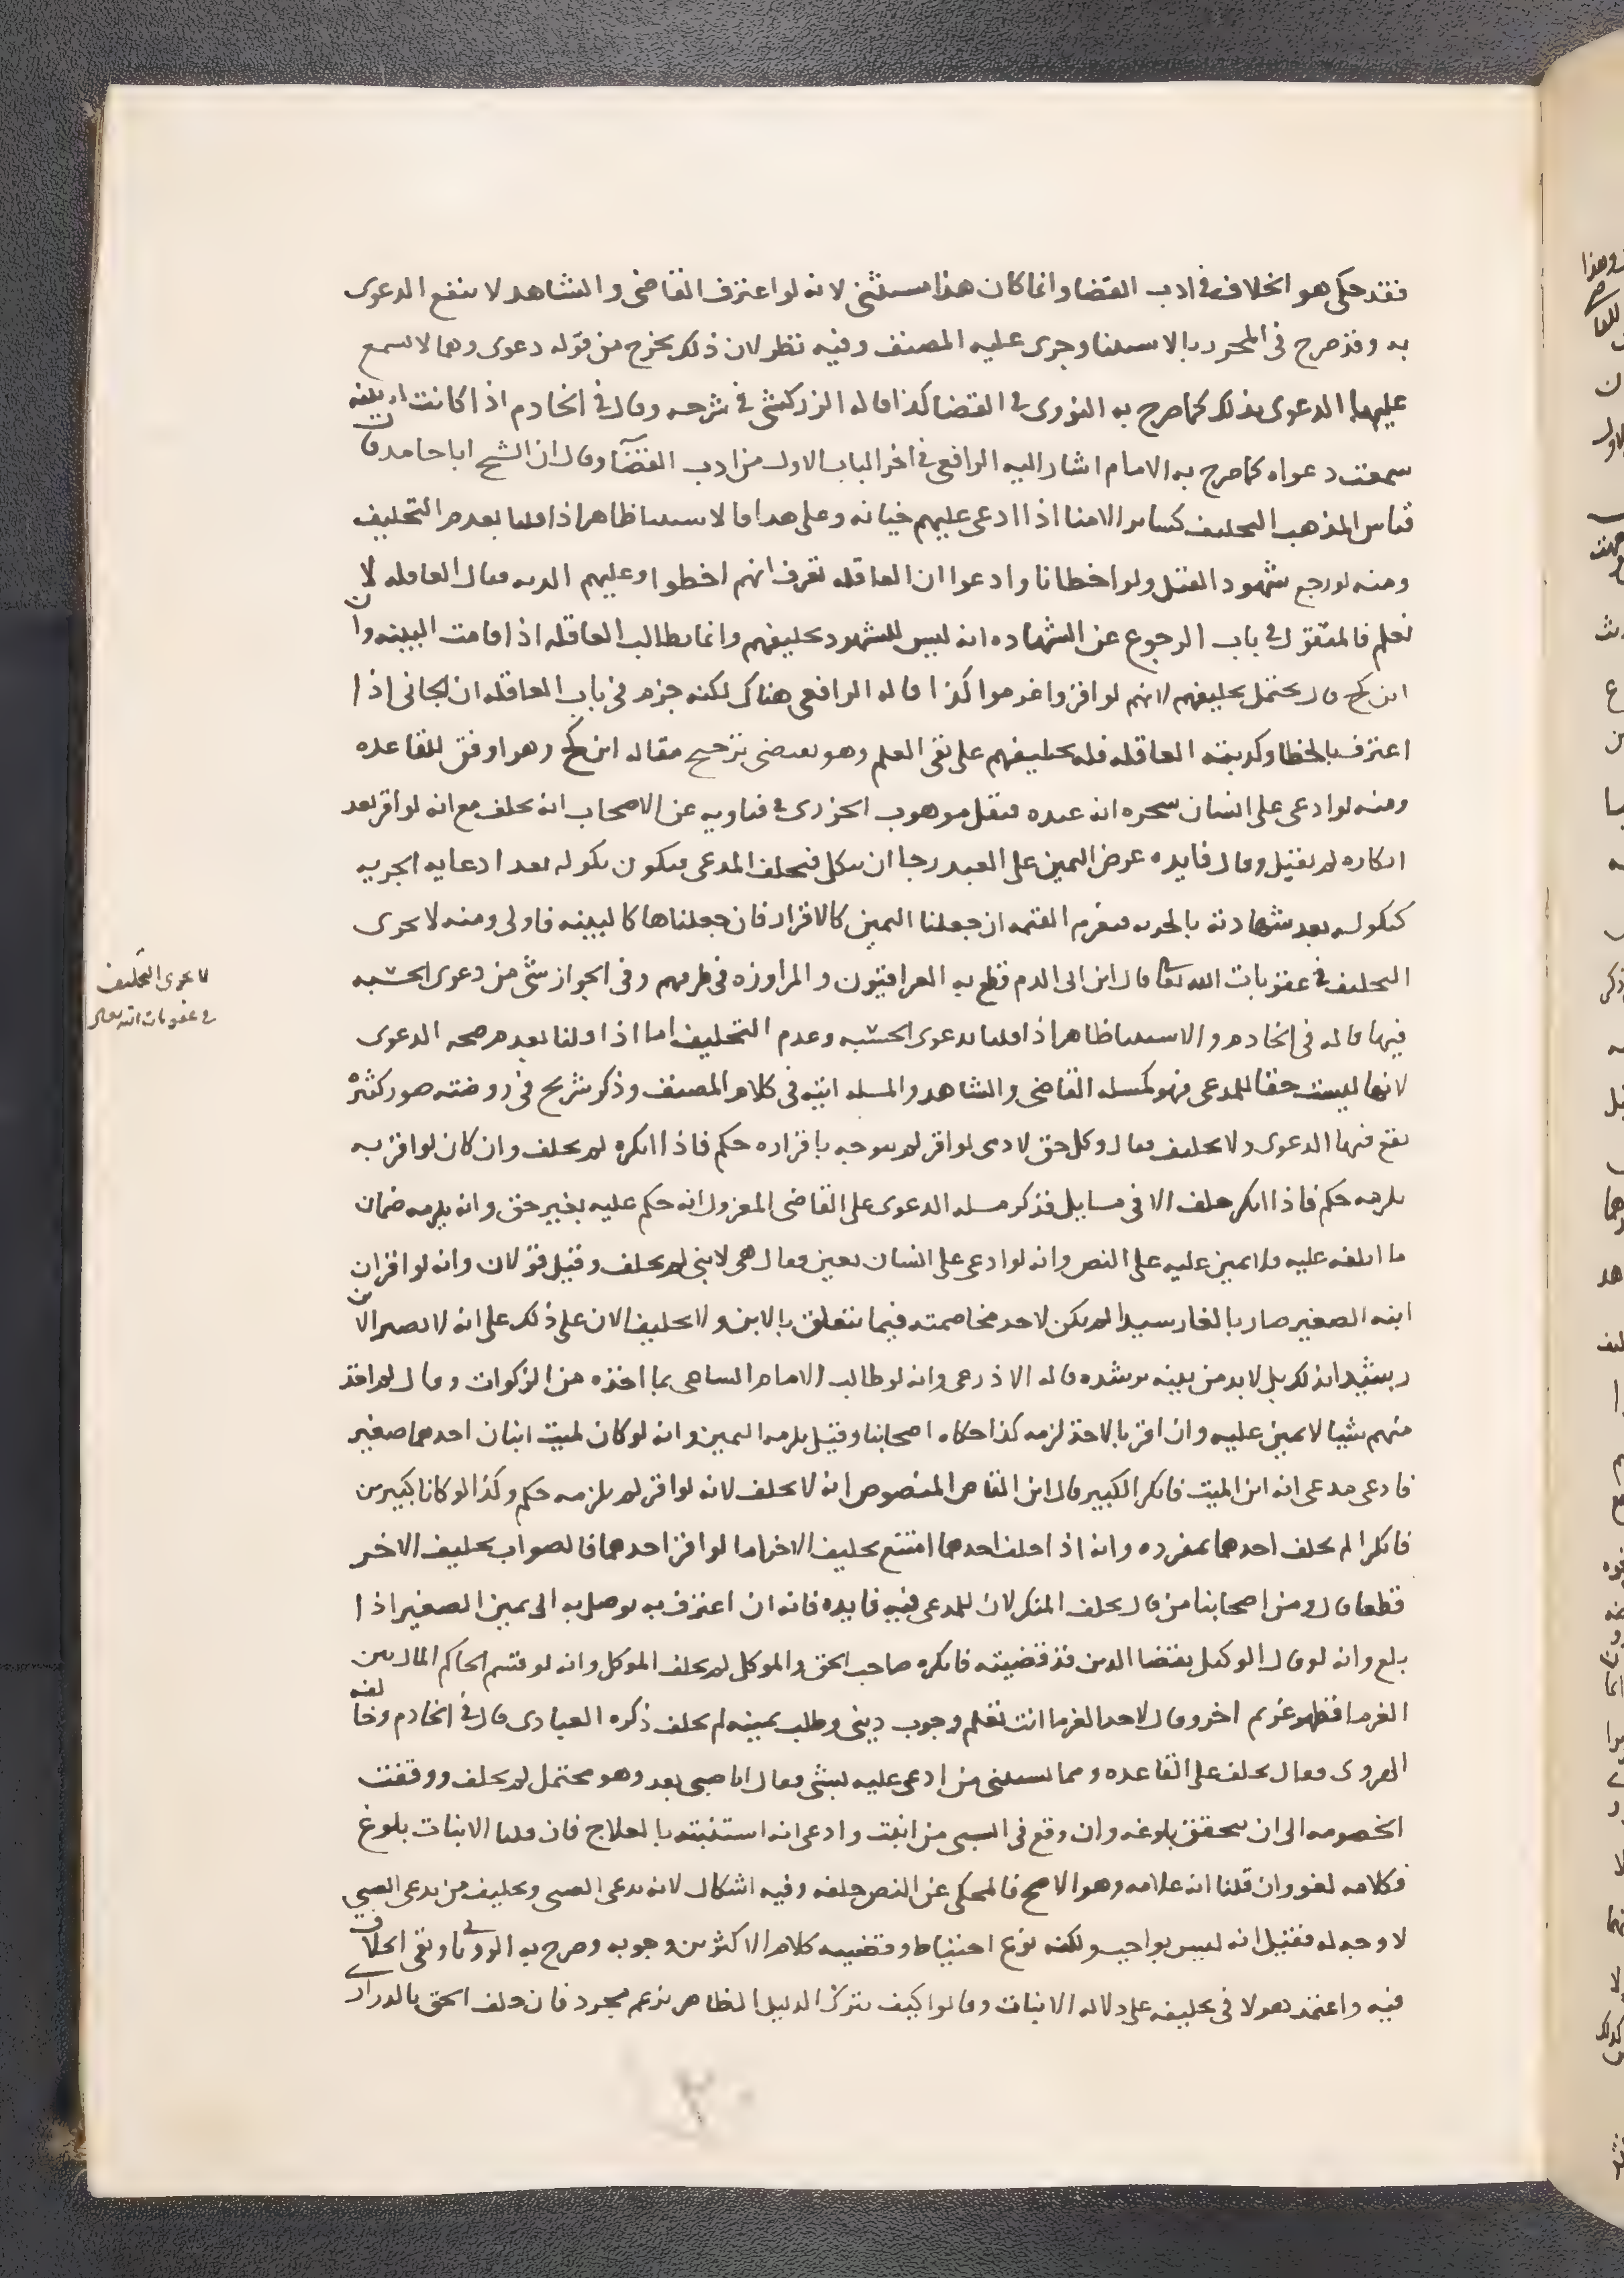 فقد حكى هو الخلاف في ادب القضا وانما كان هذا مستثنى لانه لو اعترف القاضي والشاهد لا ينفع الدعوى
به وقد صرح في المحرر بالاستثنا وجرى عليه المصنف وفيه نظر لان ذلك يخرج من قوله دعوى وهما لا تسمع
عليهما الدعوى بذلك كما صرح به النووى في القضا كذا قاله الزركشي في شرحه وقال في الخادم اذا كانت
سمعت دعواه كما صرح به الامام اشار اليه الرافعي في اخر الباب الاول من ادب القضا وقال ان الشيخ ابا حامد قال
قياس المذهب التحليف كساير الامنا اذا ادعى عليهم خيانه وعلى هذا فالاستثنا ظاهر اذا قلنا بعدم التحليف
ومنه لو رجع شهود القتل ولو اخطانا وادعوا ان العاقله تعرف انهم اخطوا وعليهم الديه فقال العاقله لا
نعلم فالمنقول في باب الرجوع عن الشهاده انه ليس للشهود تحليفهم وانما يطالب العاقله اذا قامت البينه وان
ابن كج قال يحتمل تحليفهم لانهم لو اقروا غرموا كذا قاله الرافعي هناك لكنه جزم في باب العاقله ان الجاني اذا
اعترف بالخطا وكذبته العاقله فله تحليفهم على نفي العلم وهو يقتضى ترجيح مقاله ابن كج وهو اوفق للقاعده
ومنه لو ادعى على انسان سحره انه عبده فنقل موهوب الجزرى في فتاويه عن الاصحاب انه يحلف مع انه لو اقر بعد
انكاره لم يقبل وقال فايده عرض اليمين على العبد رجا ان ينكل فيحلف المدعى فيكون نكوله بعد ادعايه الحريه
كنكوله بعد شهادته بالحريه فيغرم القيمه ان جعلنا اليمين كالاقرار فان جعلناها كالبينه فاولى ومنه لا يجرى
التحليف في عقوبات الله تعا قال ابن ابي الدم قطع به العراقيون والمراوزه في طرقهم وفي الجواز شي من دعوى الحسبه
فيها قاله في الخادم والاستثنا ظاهر اذا قلنا بدعوى الحسبه وعدم التحليف اما اذا قلنا بعدم صحه الدعوى
لانها ليست حقا للمدعى فهو كمسله القاضي والشاهد والمسله اتيه في كلام المصنف وذكر شريح في روضته صور كثيره
تقع فيها الدعوى ولا تحليف فقال وكل حق لادمى لو اقر لم يتوجه باقراره حكم فاذا انكره لم يحلف وان كان لو اقر به
يلزمه حكم فاذا انكر حلف الا في مسايل فذكر مسله الدعوى على القاضي المعزول انه حكم عليه بغير حق وانه يلزمه ضمان
ما اتلفه عليه فلا يمين عليه على النص وانه لو ادعى على انسان بعين فقال هي لابني لم يحلف وقيل قولان وانه لو اقر ان
ابنه الصغير صار بالغا رشيدا لم يكن لاحد مخاصمته فيما يتعلق بالابن ولا تحليف الان على ذلك على انه لا يصير الابن
رشيدا بذلك بل لابد من بينه برشده قاله الاذرعي وانه لو طالب الامام الساعي بما اخذه من الزكوات وقال لم اخذ
منهم شيا لا يمين عليه وان اقر بالاخذ لزمه كذا حكاه اصحابنا وقيل يلزمه اليمين وانه لو كان لميت ابنان احدهما صغير
فادعى مدعى انه ابن الميت فانكر الكبير قال ابن القاص المنصوص انه لا يحلف لانه لو اقر لم يلزمه حكم وكذا لو كانا كبيرين
فانكرا لم يحلف احدهما بمفرده وانه اذا حلف احدهما امتنع تحليف الاخر اما لو اقر احدهما فالصواب تحليف الاخر
قطعا قال ومن اصحابنا من قال يحلف المنكر لان للمدعى فيه فايده فانه ان اعترف به توصل به الى يمين الصغير اذا
بلع وانه لو قال الوكيل بقضا الدين قد قضيته فانكره صاحب الحق والموكل لم يحلف الموكل وانه لو قسم الحاكم المال بين
الغرما فظهر غريم اخر وقال لاحد الغرما انت تعلم وجوب ديني وطلب يمينه لم يحلف ذكره العبادى قال في الخادم وخالفه
الهروى فقال يحلف على القاعده ومما يستثنى من ادعى عليه بشي فقال انا صبى بعد وهو محتمل لم يحلف ووقفت
الخصومه الى ان يتحقق بلوغه وان وقع في السبى من انبت وادعى انه استنبته بالعلاج فان قلنا الانبات بلوغ
فكلامه لغو وان قلنا انه علامه وهو الاصح فالمحكى عن النص حلفه وفيه اشكال لانه يدعى الصبى وتحليف من يدعى الصبي
لا وجه له فقيل انه ليس بواجب ولكنه نوع احتياط وقضيه كلام الاكثرين وجوبه وصرح به الرويانى ونفى الخلاف
فيه واعتمد هولا في تحليفه على دلاله الانبات وقالوا كيف نترك الدليل الظاهر بزعم مجرد فان حلف الحق بالذرارى
لا يجرى التحليف
في عقوبات الله تعالى